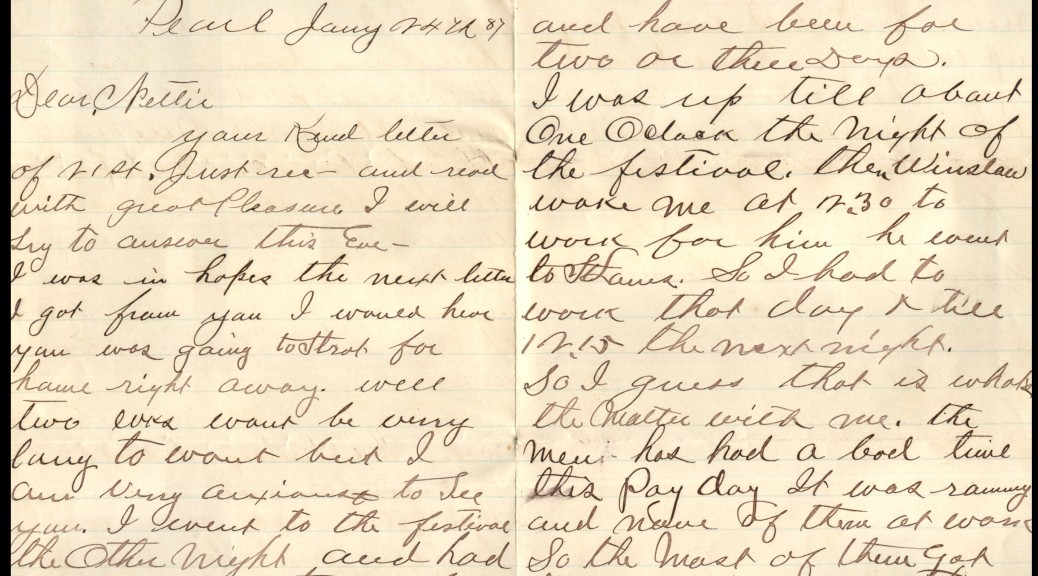 Pearl Jany 24th 87
Dear Nettie
your Kind letter
of 21st. Just rec- and read
with great Pleasure I will
try to answer this Eve-
I was in hopes the next letter
I got from you I would hear
you was going to Strat for
home right away. well
two wont be very
long to wait but I
am very anxious to See
you. I went to the festival
the Other Night and had
and have been for
two or three Days.
I was up till about
One Oclock the Night of
the festival. then Winslow
woke me at 2.30 to
work for him he went
to So I had to
work that day & till
12.15 the next night.
So I guess that is whats
the Matter with me. the
men has had a bad time
this Pay day It was
and none of them at work
So the Most of them Got